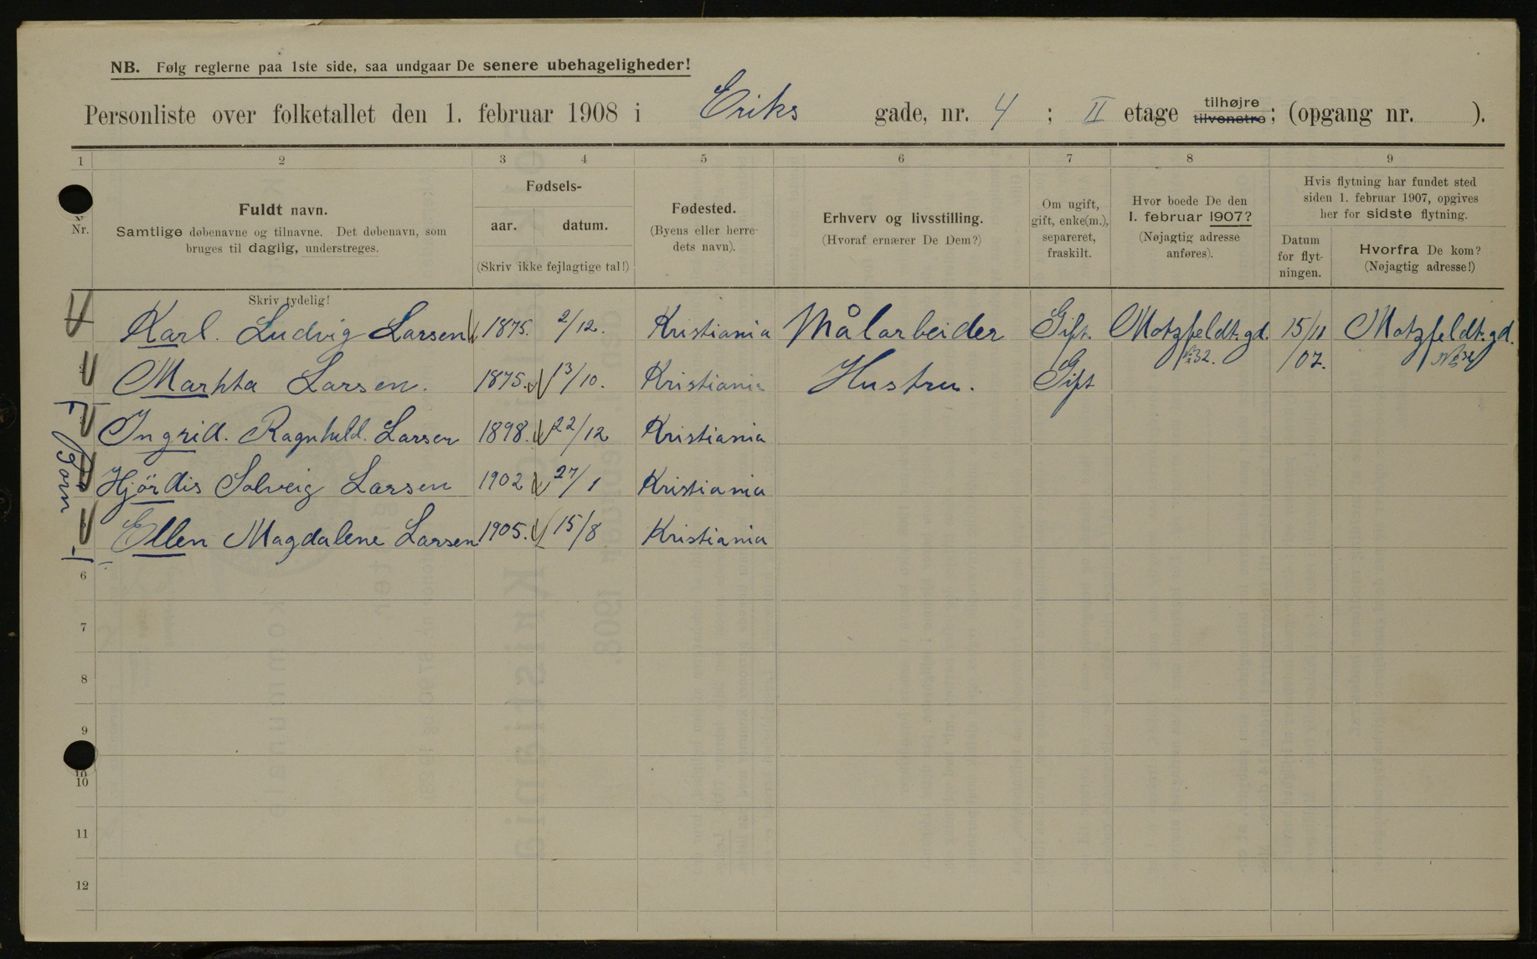 NB. Følg reglerne paa 1ste side, saa undgaar De senere ubehageligheder!
Personliste over folketallet den 1. februar 1908 i Eriks gade, nr. 4 ; II etage tilhøjre tilvenstre; (opgang nr. ).
1 2 3 4 5 6 7 8 9
Nr.
Fuldt navn.
Samtlige døbenavne og tilnavne. Det døbenavn, som
bruges til daglig, understreges.
Skriv tydelig!
Fødsels-
aar. datum.
(Skriv ikke fejlagtige tal!)
Fødested.
(Byens eller herre-
dets navn).
Erhverv og livsstilling.
(Hvoraf ernærer De Dem?)
Om ugift,
gift, enke(m.),
separeret,
fraskilt.
Hvor boede De den
1. februar 1907?
(Nøjagtig adresse
anføres).
Hvis flytning har fundet sted
siden 1. februar 1907, opgives
her for sidste flytning.
Datum
for flyt-
ningen.
Hvorfra De kom?
(Nøjagtig adresse!)
Karl. Ludvig Larsen 1875. 2/12. Kristiania Målarbeider Gift. Motzfeldt.gd. 15/11 Motzfeldt.gd.
No 32. /07. No 32
Marhta Larsen. 1875. 13/10. Kristiania Hustru. Gift
Ingrid. Ragnhild. Larsen 1898. 22/12 Kristiania
Hjördis Solveig Larsen 1902 27/1 Kristiania
Ellen Magdalene Larsen 1905. 15/8 Kristiania
Børn
6
7
8
9
10
11
12